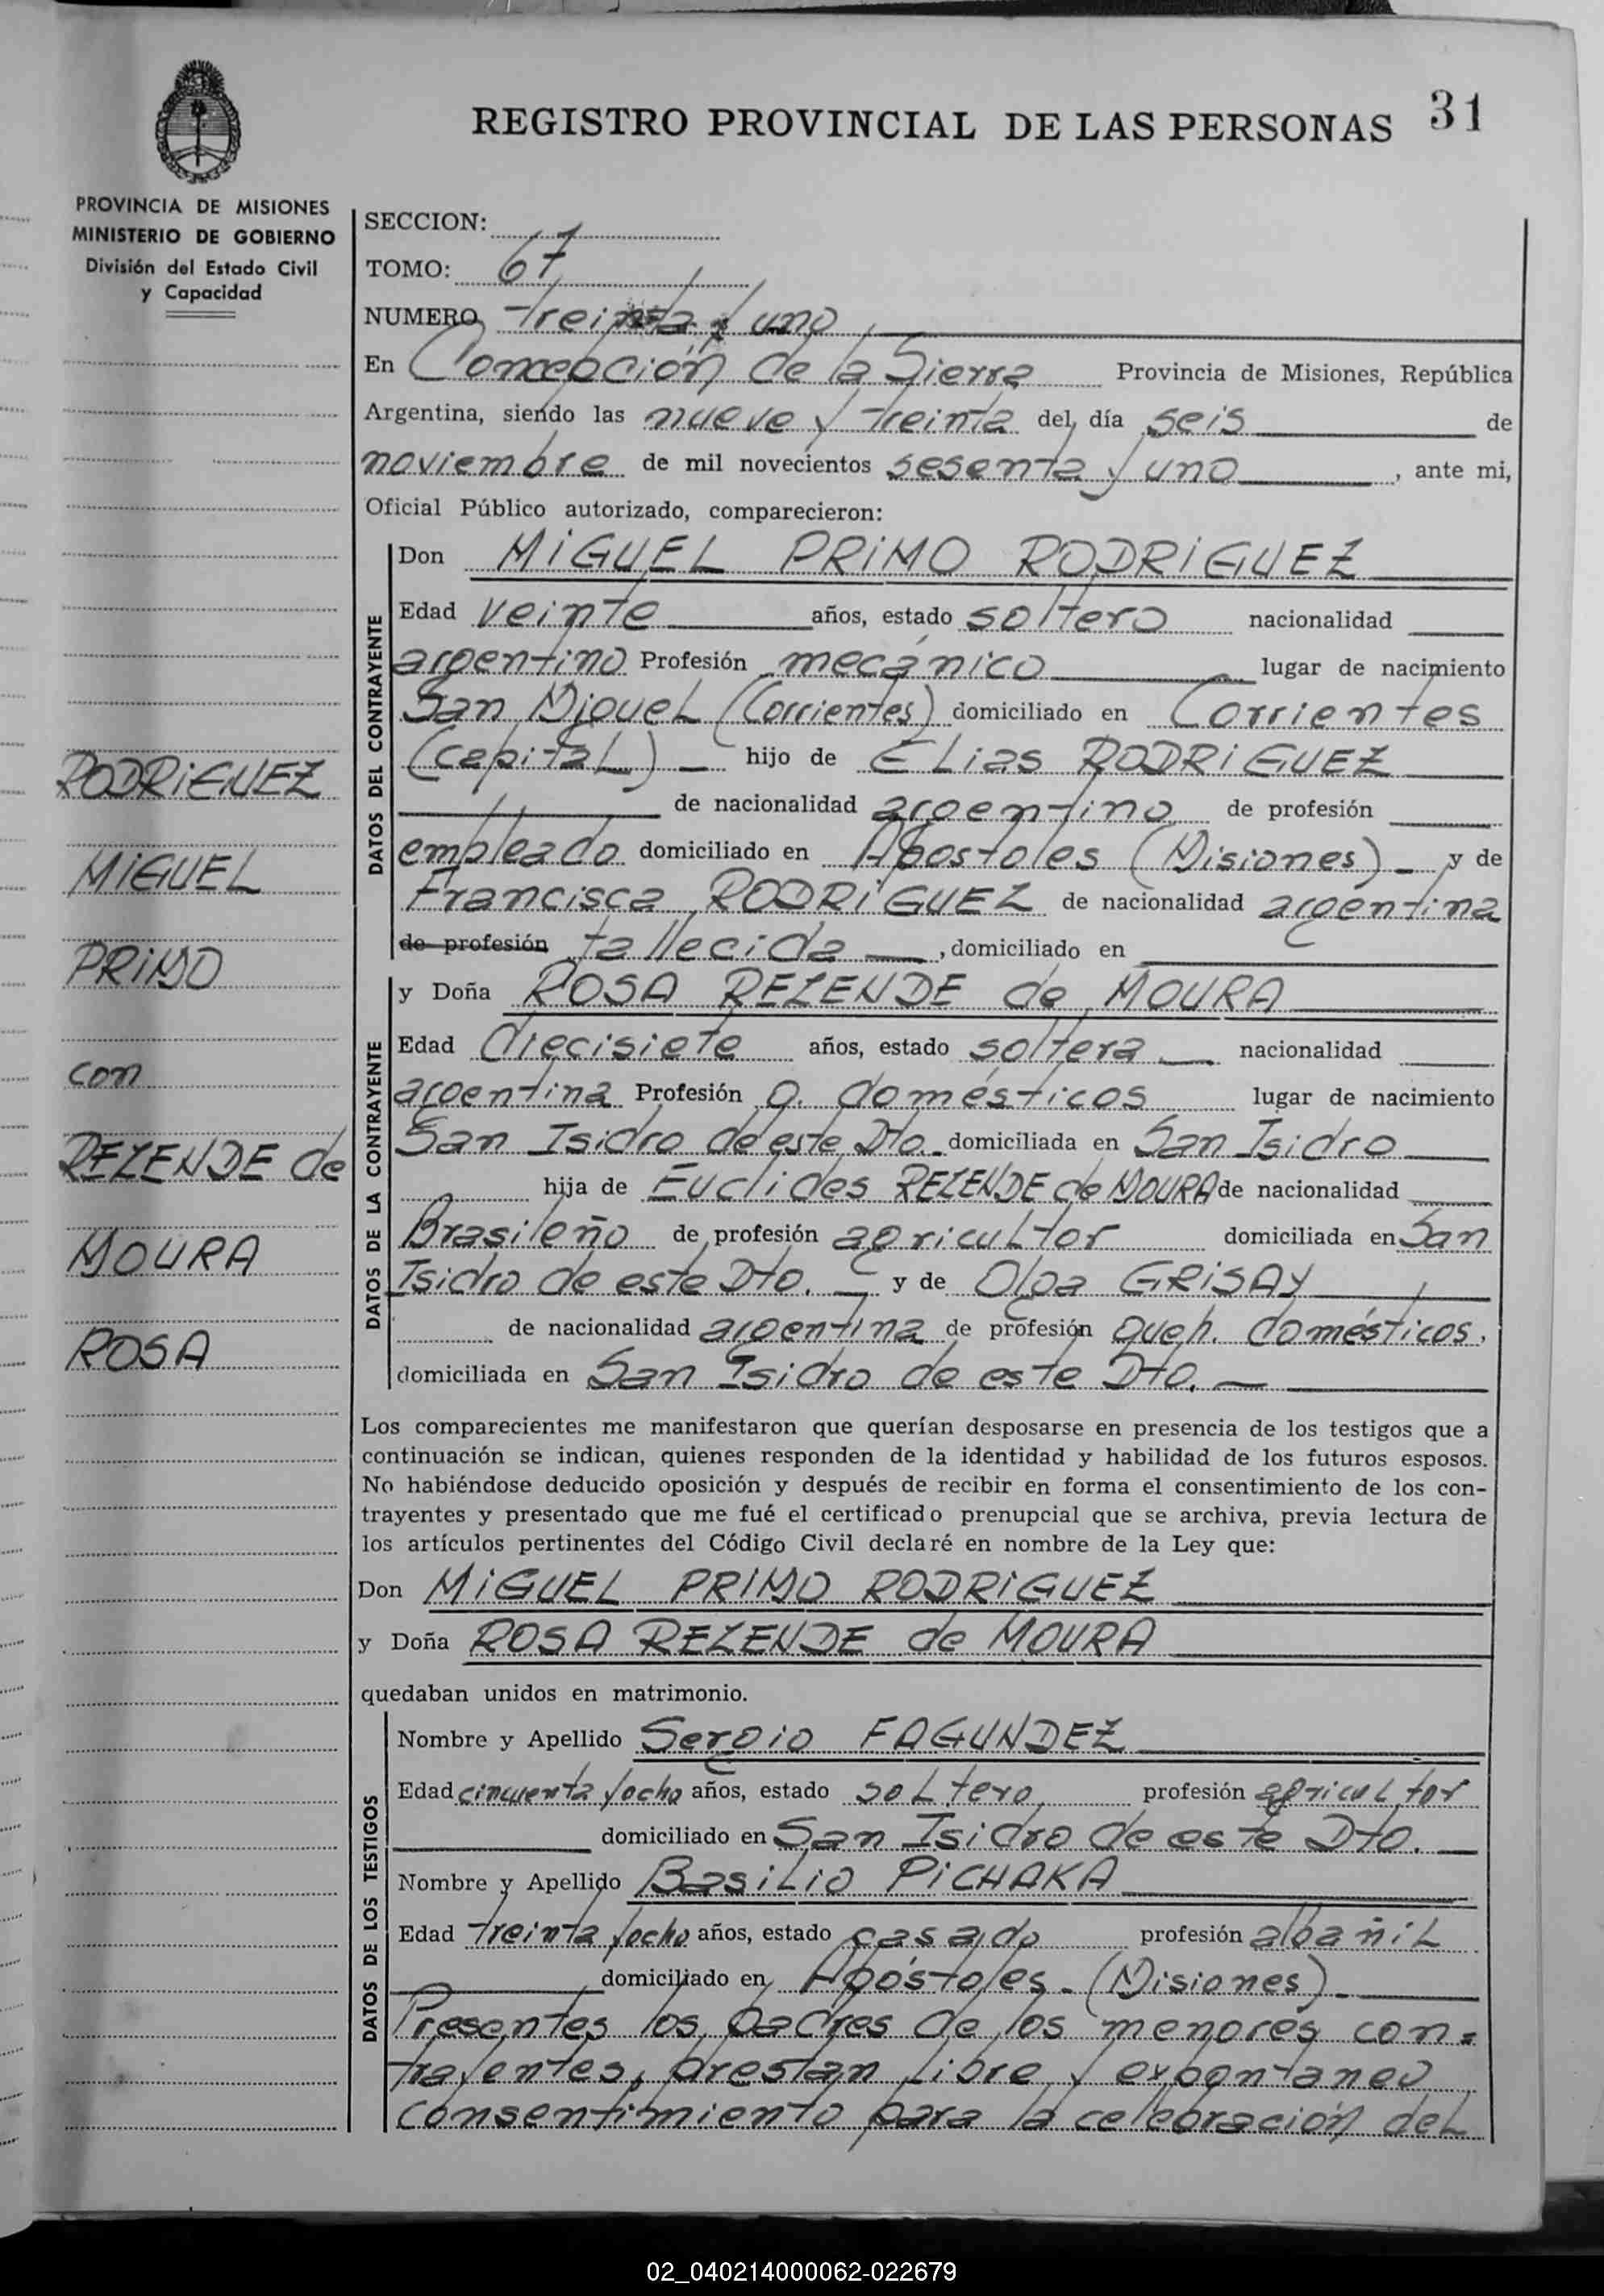 REGISTRO PROVINCIAL DE LAS PERSONAS 31
PROVINCIA DE MISIONES
MINISTERIO DE GOBIERNO
División del Estado Civil
y Capacidad
RODRIGUEZ
MIGUEL
PRIMO
con
REZENDE de
MOURA
ROSA
SECCION:
TOMO: 67
NUMERO treinta y uno
En Concepción de la Sierra Provincia de Misiones, República
Argentina, siendo las nueve y treinta del día seis de
noviembre de mil novecientos sesenta y uno, ante mi,
Oficial Público autorizado, comparecieron:
DATOS DEL CONTRAYENTE
Don MIGUEL PRIMO RODRIGUEZ
Edad veinte años, estado soltero nacionalidad
argentino Profesión mecánico lugar de nacimiento
San Miguel (Corrientes) domiciliado en Corrientes
(capital) hijo de Elias RODRIGUEZ
de nacionalidad argentino de profesión
empleado domiciliado en Apóstoles (Misiones) y de
Francisca RODRIGUEZ de nacionalidad argentina
de profesión fallecida, domiciliado en
DATOS DE LA CONTRAYENTE
y Doña ROSA REZENDE de MOURA
Edad diecisiete años, estado soltera nacionalidad
argentina Profesión q. domésticos lugar de nacimiento
San Isidro de este Dto. domiciliada en San Isidro
hija de Euclides REZENDE de MOURA de nacionalidad
Brasileño de profesión agricultor domiciliada en San
Isidro de este Dto. y de Olga GRISAY
de nacionalidad argentina de profesión queh. domésticos,
domiciliada en San Isidro de este Dto.
Los comparecientes me manifestaron que querían desposarse en presencia de los testigos que a
continuación se indican, quienes responden de la identidad y habilidad de los futuros esposos.
No habiéndose deducido oposición y después de recibir en forma el consentimiento de los con-
trayentes y presentado que me fué el certificado prenupcial que se archiva, previa lectura de
los artículos pertinentes del Código Civil declaré en nombre de la Ley que:
Don MIGUEL PRIMO RODRIGUEZ
y Doña ROSA REZENDE de MOURA
quedaban unidos en matrimonio.
DATOS DE LOS TESTIGOS
Nombre y Apellido Sergio FAGUNDEZ
Edad cincuenta y ocho años, estado soltero, profesión agricultor
domiciliado en San Isidro de este Dto.
Nombre y Apellido Basilio PICHAKA
Edad treinta y ocho años, estado casado profesión albañil
domiciliado en Apóstoles - (Misiones)
Presentes los padres de los menores con=
trayentes, prestan libre y expontaneo
consentimiento para la celebración del
02_040214000062-022679